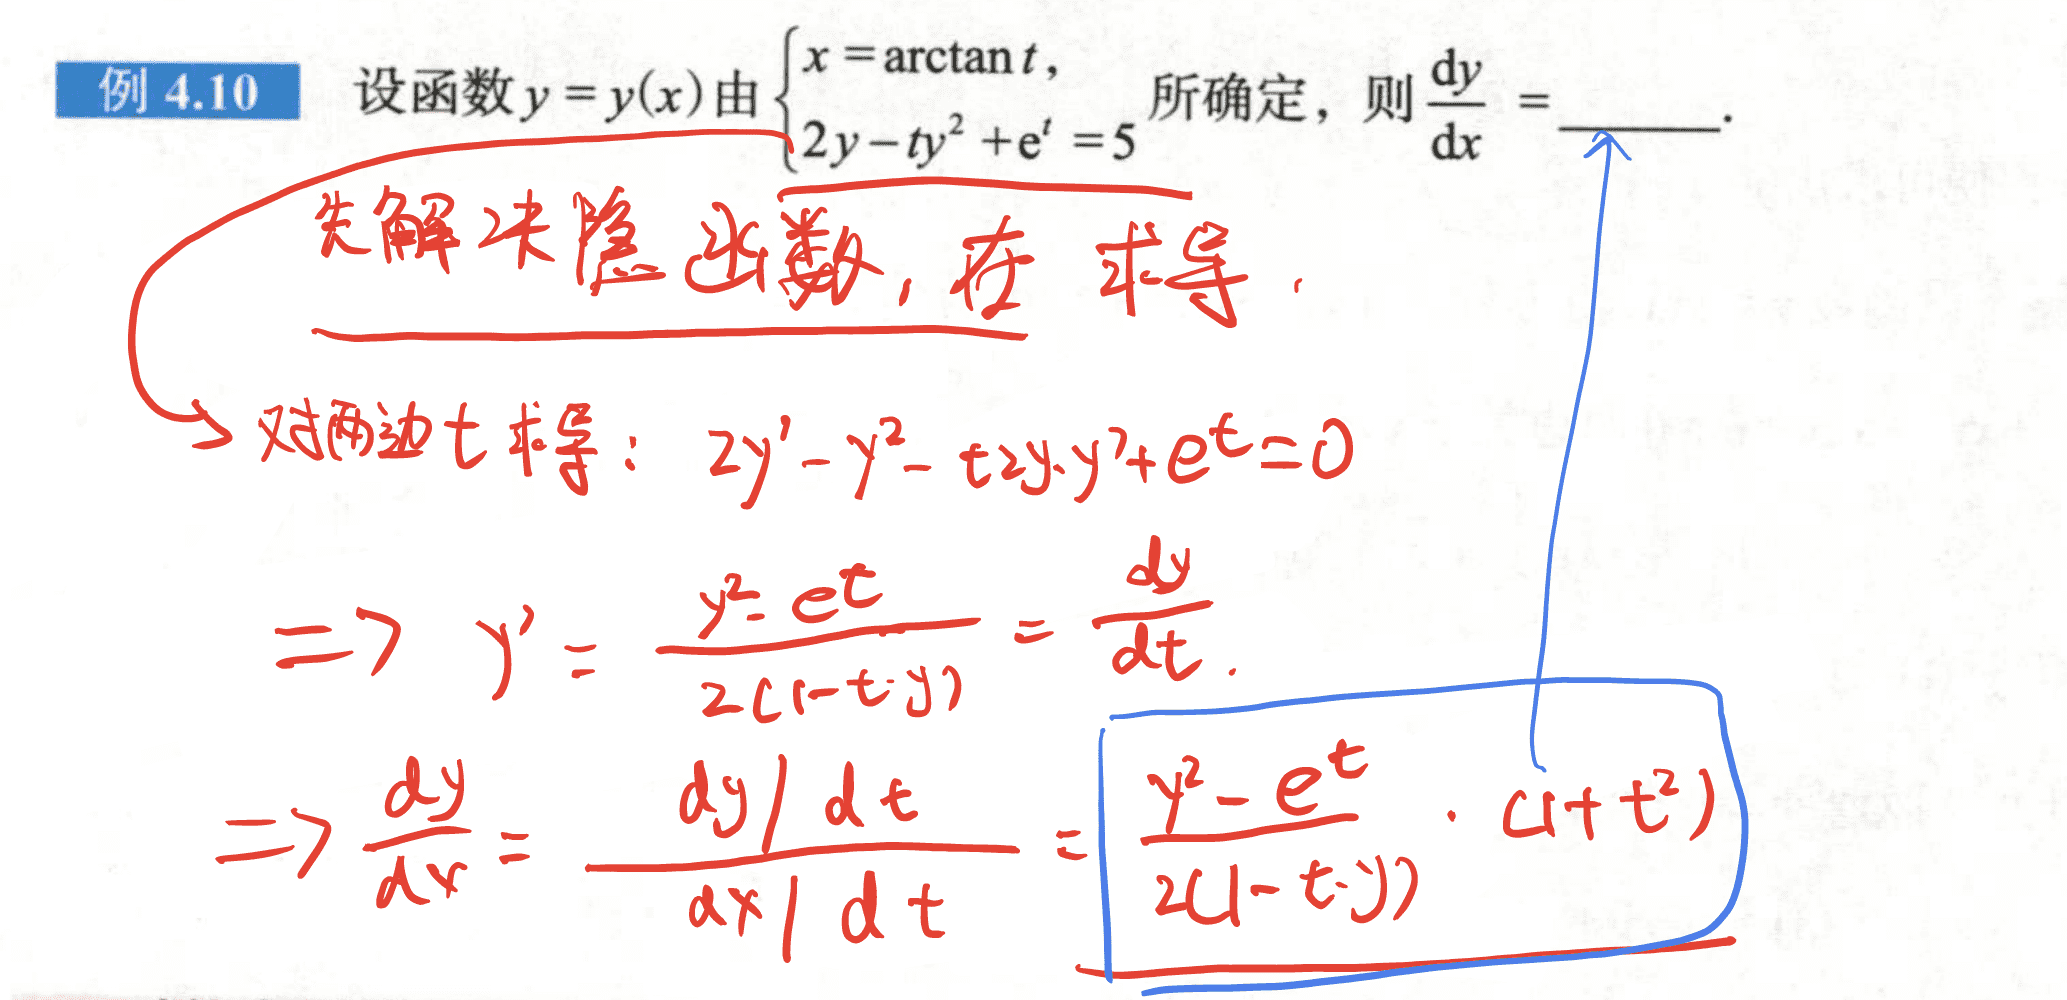 例 4.10 设函数 y = y(x) 由 { x = arctan t, 2y − ty² + eᵗ = 5 所确定，则 dy/dx = ______.
先解决隐函数，在 求导.
对两边 t 求导： 2y' − y² − t2y·y' + eᵗ = 0
=> y' = (y² − eᵗ)/(2(1 − t·y)) = dy/dt.
=> dy/dx = (dy/dt)/(dx/dt) = (y² − eᵗ)/(2(1 − t·y)) · (1 + t²)